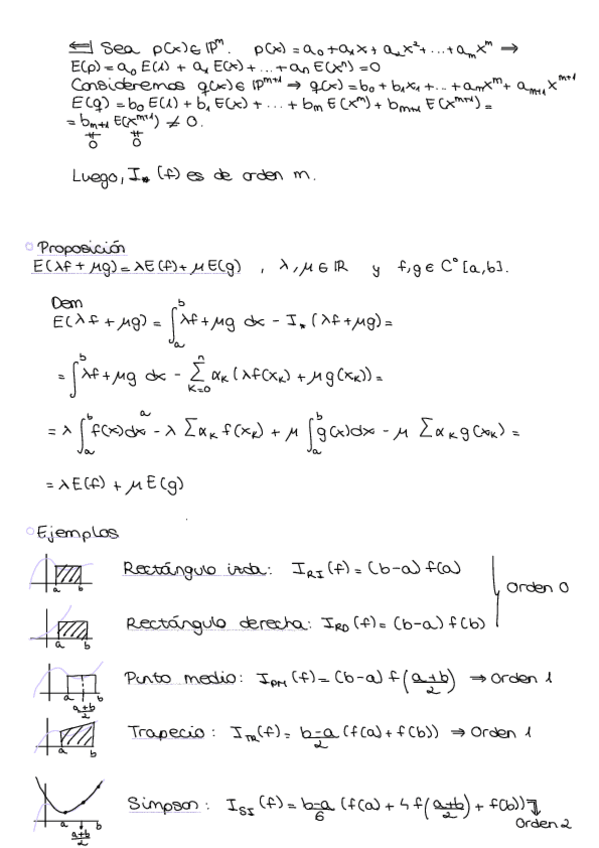 ⟸| Sea p(x) ∈ ℙᵐ. p(x) = a₀ + a₁x + a₂x² + ... + aₘxᵐ →
E(p) = a₀ E(1) + a₁ E(x) + ... + aₙ E(xⁿ) = 0
Consideremos q(x) ∈ ℙᵐ⁺¹ → q(x) = b₀ + b₁x₁ + ... + aₘxᵐ + aₘ₊₁ xᵐ⁺¹
E(q) = b₀ E(1) + b₁ E(x) + ... + bₘ E(xᵐ) + bₘ₊₁ E(xᵐ⁺¹) =
= bₘ₊₁ E(xᵐ⁺¹) ≠ 0.
≠ ≠
0 0
Luego, I* (f) es de orden m.
Proposición
E(λf + μg) = λE(f) + μE(g) , λ, μ ∈ ℝ y f, g ∈ C⁰ [a,b].
Dem
E(λf + μg) = ∫ₐᵇ λf + μg dx - I* (λf + μg) =
= ∫ₐᵇ λf + μg dx - Σₖ₌₀ⁿ αₖ (λf(xₖ) + μg(xₖ)) =
= λ ∫ₐᵇ f(x)dx - λ Σαₖ f(xₖ) + μ ∫ₐᵇ g(x)dx - μ Σαₖ g(xₖ) =
= λE(f) + μE(g)
Ejemplos
a b Rectángulo izda: I_RI (f) = (b-a) f(a)
Orden 0
a b Rectángulo derecha: I_RD (f) = (b-a) f(b)
a (a+b)/2 b Punto medio: I_PM (f) = (b-a) f((a+b)/2) ⇒ Orden 1
a b Trapecio: I_TR(f) = (b-a)/2 (f(a) + f(b)) ⇒ Orden 1
a (a+b)/2 b Simpson: I_SI (f) = (b-a)/6 (f(a) + 4f((a+b)/2) + f(b))
Orden 2